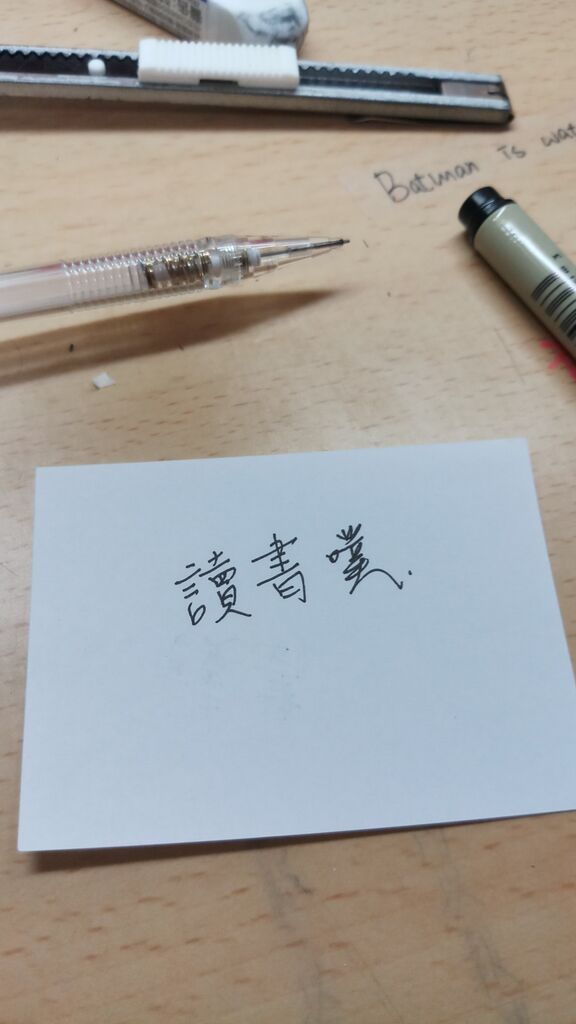 Batman is wat
讀書噗.